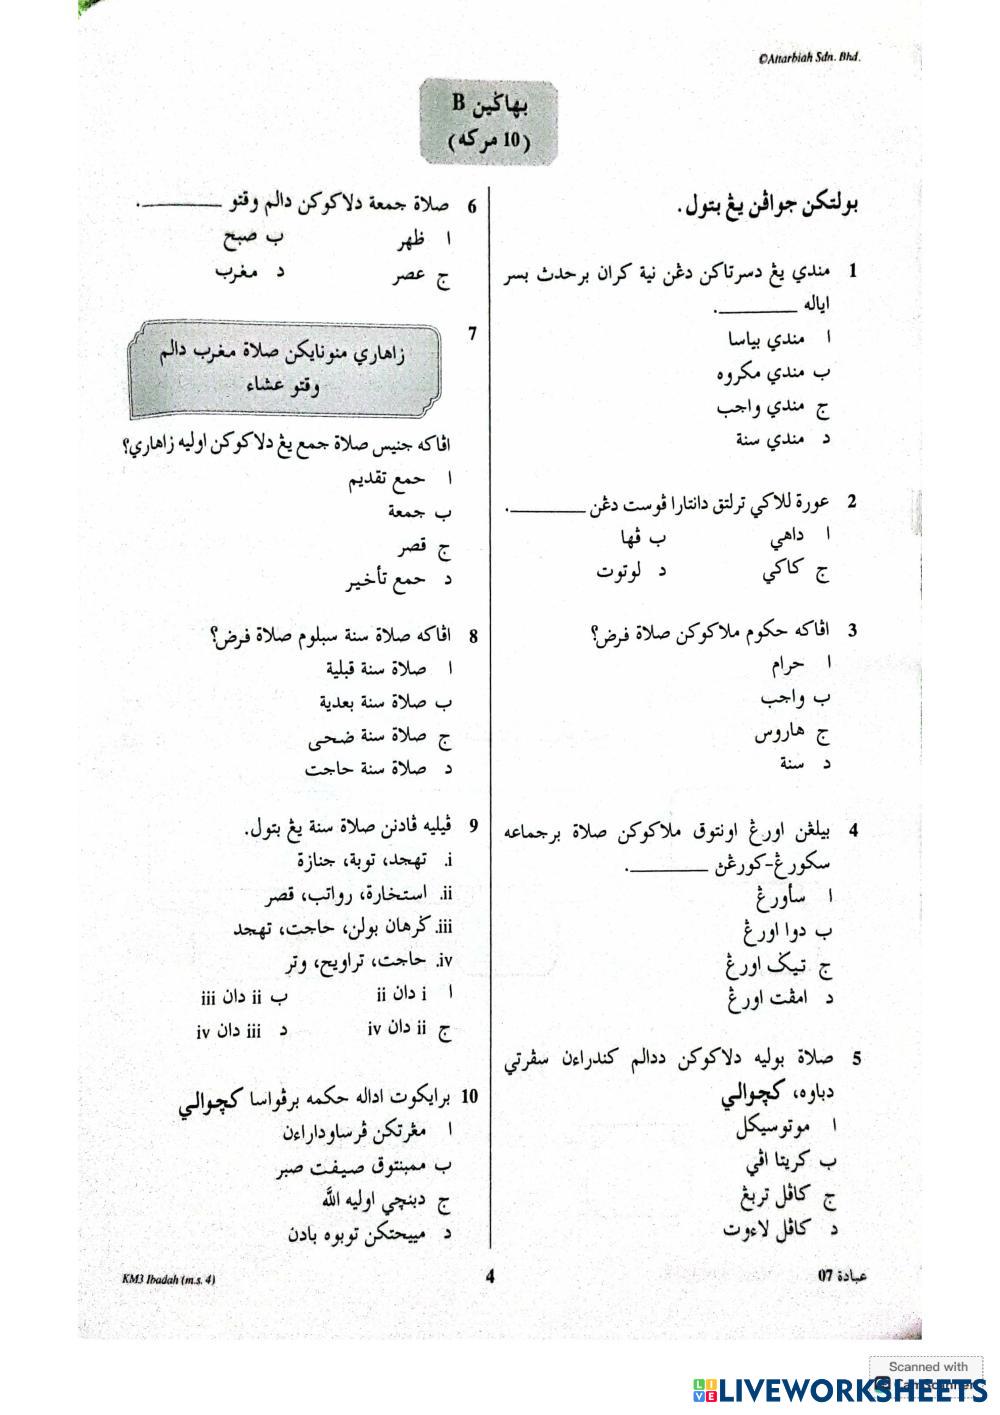 ©Attarbiah Sdn. Bhd.
بهاݢين B
(10 مركه)
بولتكن جواڤن يڠ بتول.
1 مندي يڠ دسرتاكن دڠن نية كران برحدث بسر
اياله ________.
ا مندي بياسا
ب مندي مكروه
ج مندي واجب
د مندي سنة
2 عورة للاكي ترلتق دانتارا ڤوست دڠن ________.
ا داهي
ب ڤها
ج كاكي
د لوتوت
3 اڤاكه حكوم ملاكوكن صلاة فرض؟
ا حرام
ب واجب
ج هاروس
د سنة
4 بيلڠن اورڠ اونتوق ملاكوكن صلاة برجماعه
سكورڠ-كورڠن ________.
ا سأورڠ
ب دوا اورڠ
ج تيݢ اورڠ
د امڤت اورڠ
5 صلاة بوليه دلاكوكن ددالم كندراءن سڤرتي
دباوه، كچوالي
ا موتوسيكل
ب كريتا اڤي
ج كاڤل تربڠ
د كاڤل لاءوت
6 صلاة جمعة دلاكوكن دالم وقتو ________.
ا ظهر
ب صبح
ج عصر
د مغرب
7
زاهاري منونايكن صلاة مغرب دالم
وقتو عشاء
اڤاكه جنيس صلاة جمع يڠ دلاكوكن اوليه زاهاري؟
ا حمع تقديم
ب جمعة
ج قصر
د حمع تأخير
8 اڤاكه صلاة سنة سبلوم صلاة فرض؟
ا صلاة سنة قبلية
ب صلاة سنة بعدية
ج صلاة سنة ضحى
د صلاة سنة حاجت
9 ڤيليه ڤادنن صلاة سنة يڠ بتول.
i. تهجد، توبة، جنازة
ii. استخارة، رواتب، قصر
iii. ݢرهان بولن، حاجت، تهجد
iv. حاجت، تراويح، وتر
ا i دان ii
ب ii دان iii
ج ii دان iv
د iii دان iv
10 برايكوت اداله حكمه برڤواسا كچوالي
ا مڠرتكن ڤرساوداراءن
ب ممبنتوق صيفت صبر
ج دبنچي اوليه الله
د مييحتكن توبوه بادن
KM3 Ibadah (m.s. 4)
4
عبادة 07
Scanned with
CamScanner
LIVEWORKSHEETS